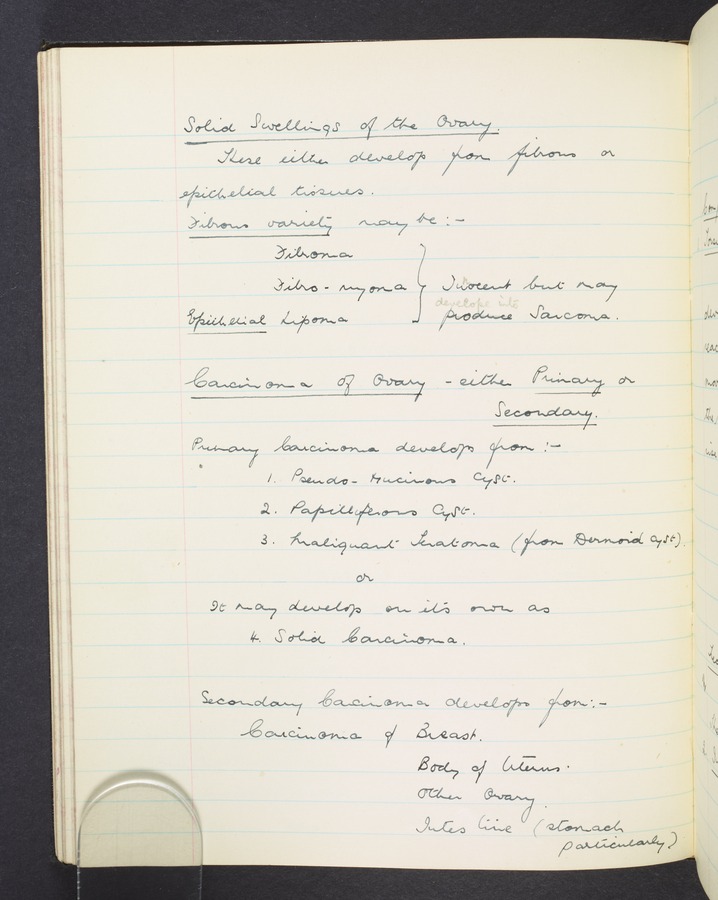 Solid Swellings of the Ovary.
These either develop from fibrous or
epithelial tissues.
Fibrous variety may be:-
Fibroma
Fibro-myoma } Inocent but may
develope into
Epithelial Lipoma produce Sarcoma.
Carcinoma of Ovary - either Primary or
Secondary.
Primary Carcinoma develops from:-
1. Pseudo-Mucinous Cyst.
2. Papilliferous Cyst.
3. Malignant Teratoma (from Dermoid Cyst).
or
It may develop on it's own as
4. Solid Carcinoma.
Secondary Carcinoma develops from:-
Carcinoma of Breast.
Body of Uterus.
Other Ovary.
Intestine (stomach
particularly)